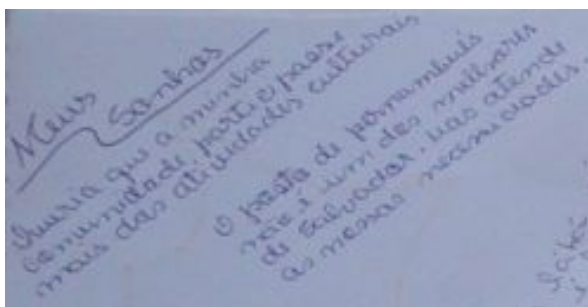 Meus
Sonhos
Queria que a minha
comunidade participasse
mais das atividades culturais
O posto de pernambués
não é um dos milhares
de Salvador, mas atende
as nossas necessidades.